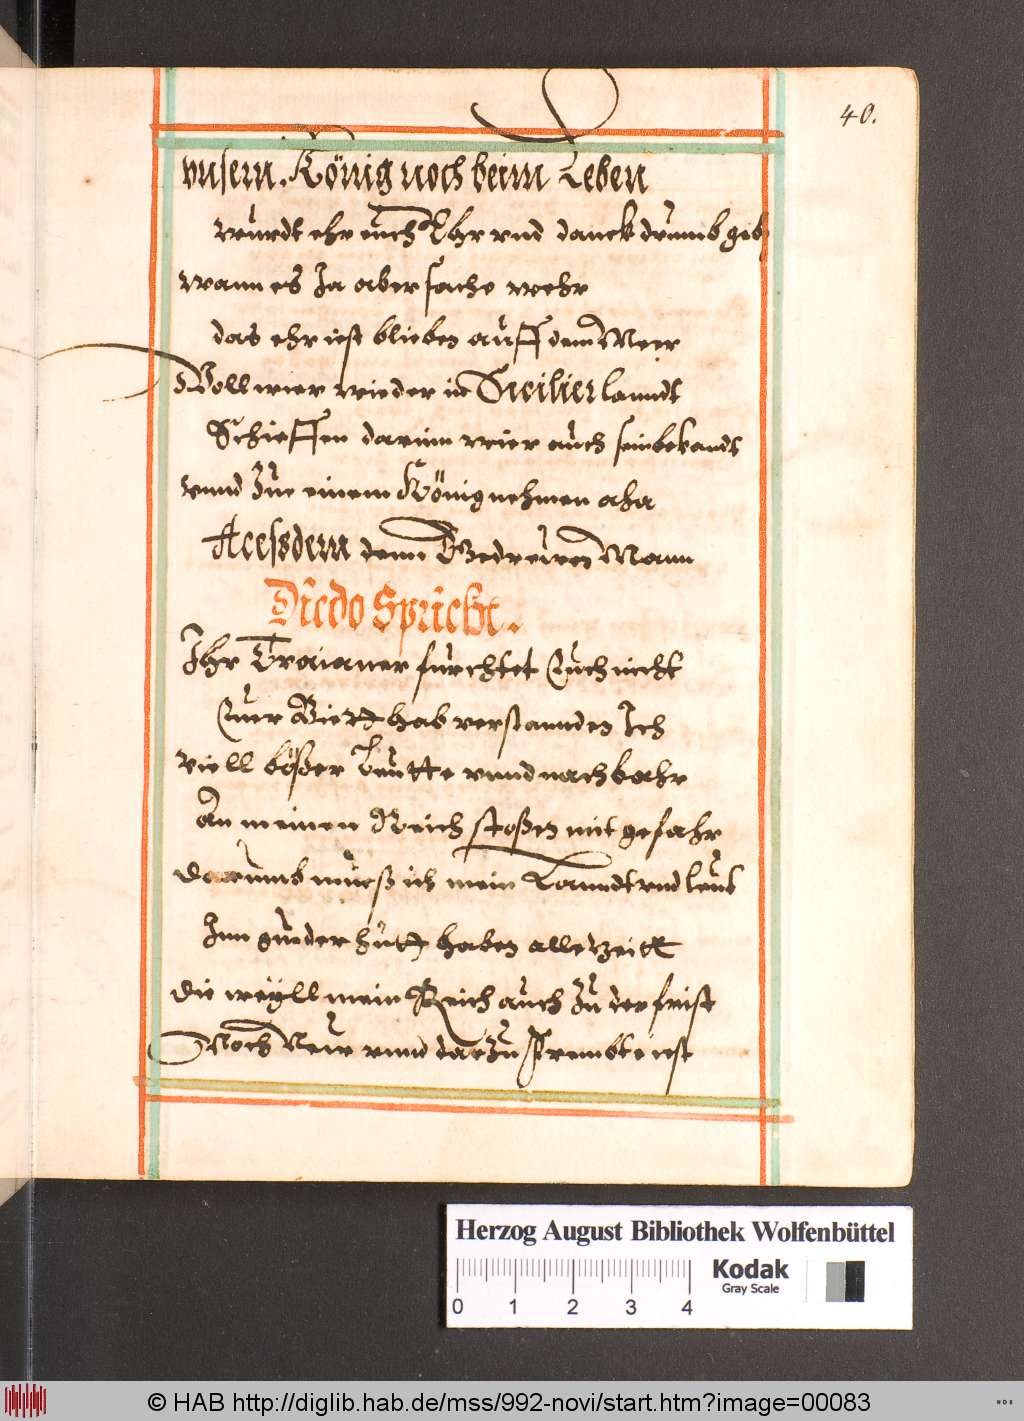 40.
vnsern König noch beim Leben
würdt ehr euch Ehr vnd danck drumb geb
wann es Ja aber sache wehr
das ehr ist blieben auff dem Meer
Woll wier wieder in Sicilier lanndt
Schieffen darinn wier auch sein bekandt
vnnd zue einem König nehmen aha
Acessdem denn Gedreuen Mann
Dido Spricht.
Ihr Troianer fürchtet Euch nicht
Euer Biett hab verstannden Ich
Viell bößer Leutte vnnd nachbahr
An meinen Reich stoßen mit gefahr
Darumb mueß ich mein Lanndt vnd leut
Inn guder hutt haben alle Zeitt
die weyll mein Reich auch zu der frist
Noch Neue vnnd darzu frembt ist
Herzog August Bibliothek Wolfenbüttel
Kodak
Gray Scale
0 1 2 3 4
© HAB http://diglib.hab.de/mss/992-novi/start.htm?image=00083